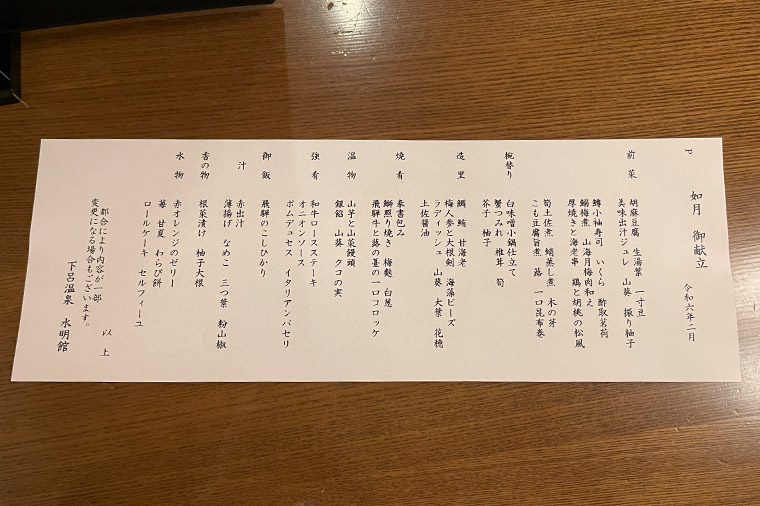 P
如月　御献立
令和六年二月
前菜
胡麻豆腐　生湯葉　一寸豆
美味出汁ジュレ　山葵　振り柚子
鱒小袖寿司　いくら　酢取茗荷
鰯梅煮　山海月梅肉和え
厚焼きと海老串　鶏と胡桃の松風
筍土佐煮　鮑蒸し煮　木の芽
こも豆腐旨煮　蕗　一口昆布巻
椀替り
白味噌小鍋仕立て
蟹つみれ　椎茸　筍
芥子　柚子
造里
鯛　鮪　甘海老
梅人参と大根剣　海藻ビーズ
ラディッシュ　山葵　大葉　花穂
土佐醤油
焼肴
奉書包み
鰤照り焼き　梅麩　白葱
飛騨牛と蕗の薹の一口コロッケ
温物
山芋と山菜饅頭
銀餡　山葵　クコの実
強肴
和牛ロースステーキ
オニオンソース
ポムデュセス　イタリアンパセリ
御飯
飛騨のこしひかり
汁
赤出汁
薄揚げ　なめこ　三つ葉　粉山椒
香の物
根菜漬け　柚子大根
水物
赤オレンジのゼリー
苺　甘夏　わらび餅
ロールケーキ　セルフィーユ
以上
都合により内容が一部
変更になる場合もございます。
下呂温泉　水明館